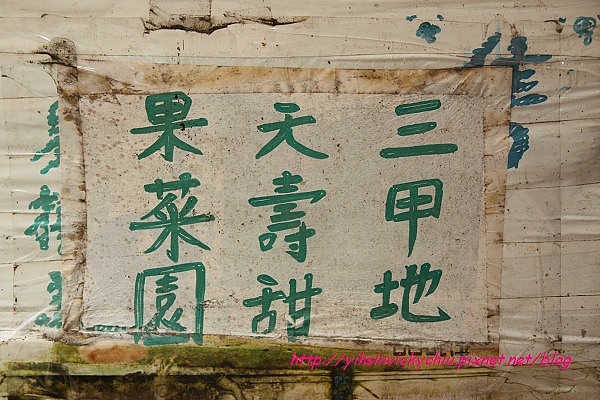 三甲地
天壽甜
果菜園
http://yihsinvickychiu.pixnet.net/blog